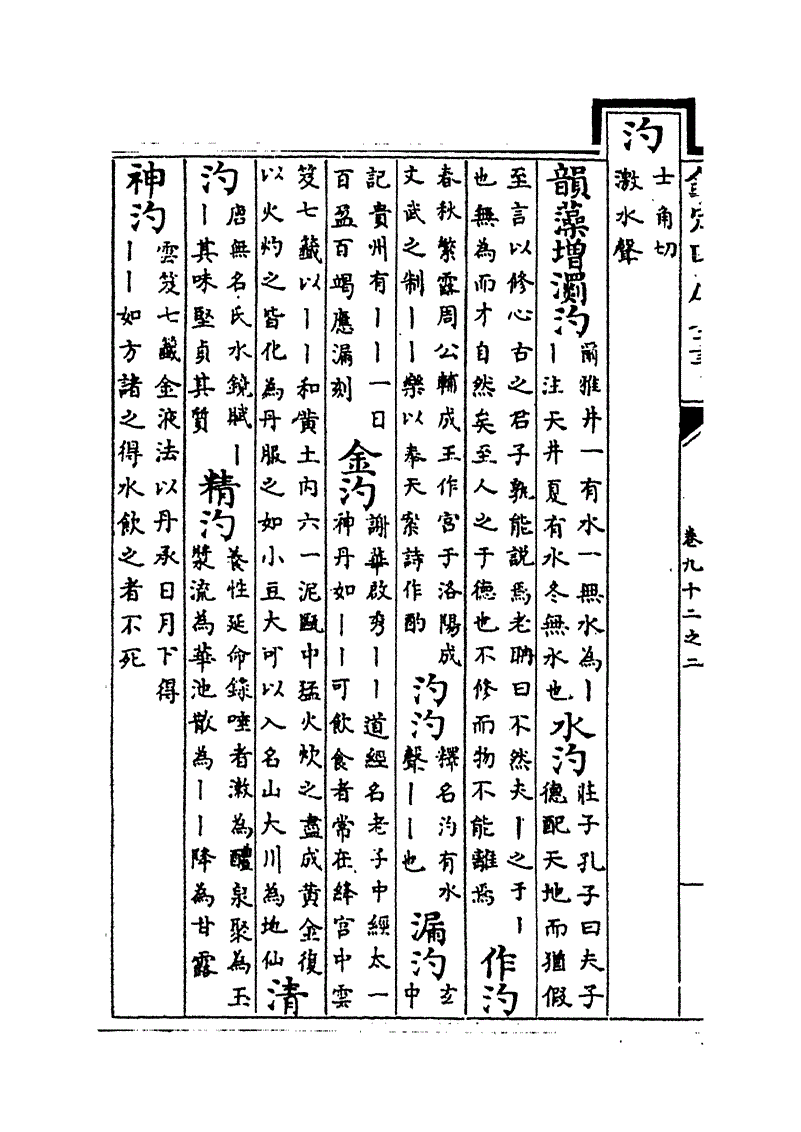 卷九十二之二
汋
士角切
激水聲
韻藻增瀱汋
爾雅井一有水一無水為丨
丨注天井夏有水冬無水也
水汋
莊子孔子曰夫子
德配天地而猶假
至言以修心古之君子孰能說焉老聃曰不然夫丨之于丨
也無為而才自然矣至人之于德也不修而物不能離焉
作汋
春秋繁露周公輔成王作宮于洛陽成
文武之制丨丨樂以奉天案詩作酌
汋汋
釋名汋有水
聲丨丨也
漏汋
玄
中
記貴州有丨丨一日
百盈百竭應漏刻
金汋
謝華啟秀丨丨道經名老子中經太一
神丹如丨丨可飲食者常在絳宮中雲
笈七籤以丨丨和黃土內六一泥甌中猛火炊之盡成黃金復
以火灼之皆化為丹服之如小豆大可以入名山大川為地仙
清
汋
唐無名氏水鏡賦丨
丨其味堅貞其質
精汋
養性延命錄唾者漱為醴泉聚為玉
漿流為華池散為丨丨降為甘露
神汋
雲笈七籤金液法以丹承日月下得
丨丨如方諸之得水飲之者不死